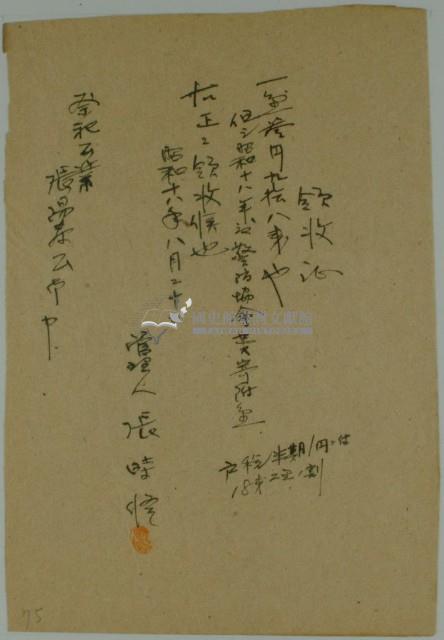 領收証
一金壹円九拾八錢也
但シ昭和十八年度警防協會費寄附金
戶稅半期1円ニ付
18錢二厘ノ割
右正ニ領收候也
昭和十八年八月二十
管理人 張時
祭祀公業
張
國史館臺灣文獻館
75